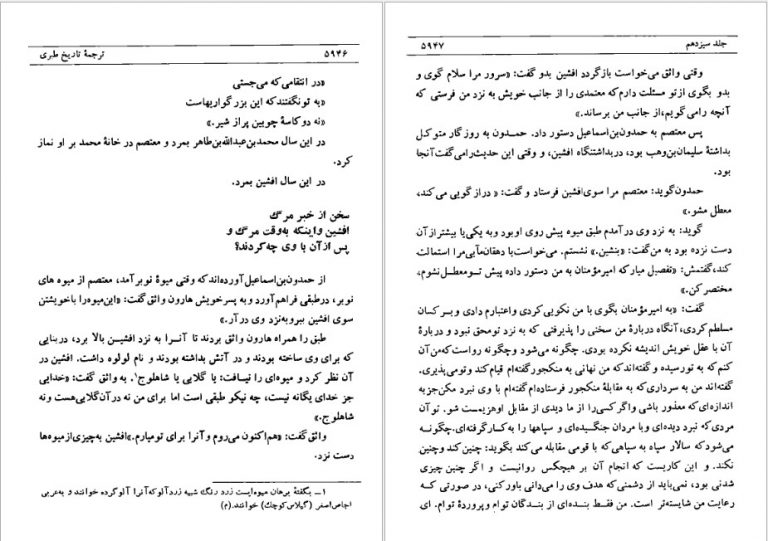 ۵۹۴۶ ترجمهٔ تاریخ طبری
«در انتقامی که می‌جستی
«به تو نگفتند که این بزرگواریهاست
«نه دو کاسهٔ چوبین پر از شیر.»
در این سال محمدبن‌عبدالله‌بن‌طاهر بمرد و معتصم در خانهٔ محمد بر او نماز
کرد.
در این سال افشین بمرد.
سخن از خبر مرگ
افشین و اینکه به‌وقت مرگ و
پس از آن با وی چه کردند؟
از حمدون‌بن‌اسماعیل آورده‌اند که وقتی میوهٔ نوبر آمد، معتصم از میوه های
نوبر، در طبقی فراهم آورد و به پسر خویش هارون واثق گفت: «این میوه را با خویشتن
سوی افشین ببر و به نزد وی در آر.»
طبق را همراه هارون واثق بردند تا آنرا به نزد افشین بالا برد، در بنایی
که برای وی ساخته بودند و در آنش بداشته بودند و نام لولوه داشت. افشین در
آن نظر کرد و میوه‌ای را نیافت: یا گلابی یا شاهلوج¹. به واثق گفت: «خدایی
جز خدای یگانه نیست، چه نیکو طبقی است اما برای من نه در آن گلابی هست و نه
شاهلوج.»
واثق گفت: «هم اکنون می‌روم و آنرا برای تو میارم.» افشین به چیزی از میوه‌ها
دست نزد.
۱ــ بگفتهٔ برهان میوه‌ایست زرد رنگ شبیه زردآلو که آنرا آلو گرده خوانند و به عربی
اجاص اصفر (گیلاس کوچک) خوانند.(م)
جلد سیزدهم ۵۹۴۷
وقتی واثق می‌خواست بازگردد افشین بدو گفت: «سرور مرا سلام گوی و
بدو بگوی از تو مسئلت دارم که معتمدی را از جانب خویش به نزد من فرستی که
آنچه را می‌گویم، از جانب من برساند.»
پس معتصم به حمدون‌بن‌اسماعیل دستور داد. حمدون به روزگار متوکل
بداشتهٔ سلیمان‌بن‌وهب بود، در بداشتنگاه افشین، و وقتی این حدیث را می‌گفت آنجا
بود.
حمدون گوید: معتصم مرا سوی افشین فرستاد و گفت: «دراز گویی می‌کند،
معطل مشو.»
گوید: به نزد وی در آمدم طبق میوه پیش روی او بود و به یکی یا بیشتر از آن
دست نزده بود به من گفت: «بنشین.» نشستم. می‌خواست با دهقان‌مآبی مرا استمالت
کند، گفتمش: «تفصیل میار که امیرمؤمنان به من دستور داده پیش تو معطل نشوم،
مختصر کن.»
گفت: «به امیرمؤمنان بگوی با من نکویی کردی و اعتبارم دادی و بر کسان
مسلطم کردی، آنگاه دربارهٔ من سخنی را پذیرفتی که به نزد تو محق نبود و دربارهٔ
آن با عقل خویش اندیشه نکرده بودی. چگونه می‌شود و چگونه رواست که من آن
کنم که به تو رسیده و گفته‌اند که من نهانی به منکجور گفته‌ام قیام کند و تو می‌پذیری.
گفته‌اند من به سرداری که به مقابلهٔ منکجور فرستاده‌ام گفته‌ام با وی نبرد مکن جز به
اندازه‌ای که معذور باشی و اگر کسی را از ما دیدی از مقابل او هزیمت شو. تو آن
مردی که نبرد دیده‌ای و با مردان جنگیده‌ای و سپاهها را به کار گرفته‌ای. چگونه
می‌شود که سالار سپاه به سپاهی که با قومی مقابله می‌کند بگوید: چنین کند و چنین
نکند. و این کاریست که انجام آن بر هیچکس روا نیست و اگر چنین چیزی
شدنی بود، نمی‌باید از دشمنی که هدف وی را می‌دانی باور کنی، در صورتی که
رعایت من شایسته‌تر است. من فقط بنده‌ای از بندگان توام و پروردهٔ توام. ای